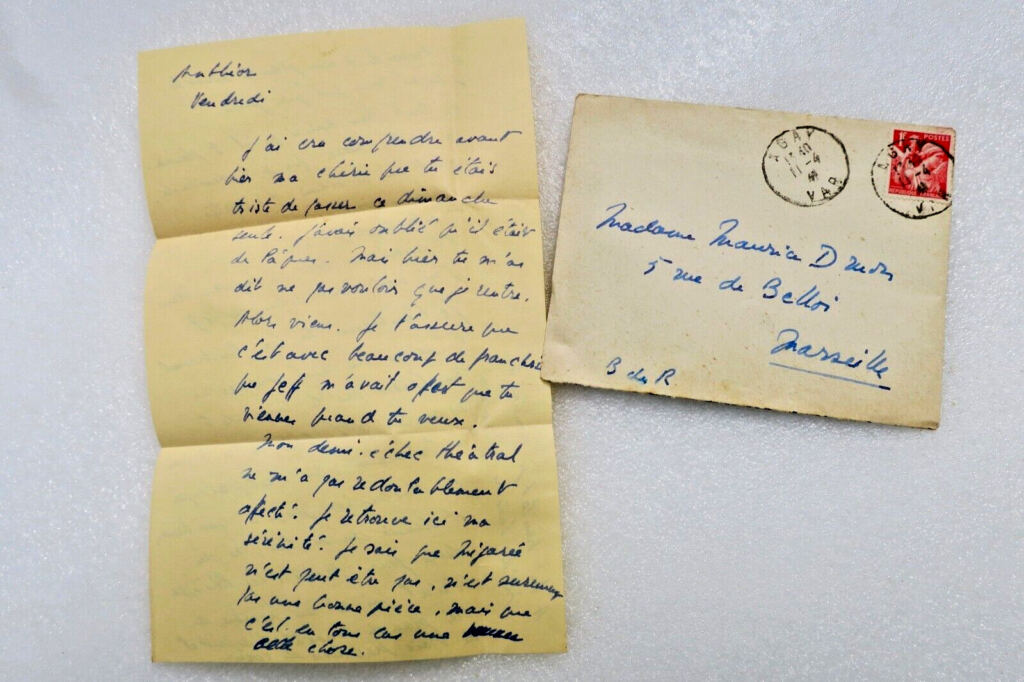 Anthéor
Vendredi
J'ai cru comprendre avant
hier ma chérie que tu étais
triste de passer ce dimanche
seule. J'avais oublié qu'il était
de Pâques. Mais hier tu m'as
dit ne pas vouloir que je rentre.
Alors viens. Je t'assure que
c'est avec beaucoup de franchise
que Jeff m'avait offert que tu
viennes quand tu veux.
Mon demi-échec théâtral
ne m'a pas redoutablement
affecté. Je retrouve ici ma
sérénité. Je sais que Mégarée
n'est peut être pas, n'est surement
pas une bonne pièce, mais que
c'est en tous cas une
chose.
AGAY
11-4
VAR
POSTES
AGAY
VAR
Madame Maurice
5 rue de Belloi
Marseille
B du R